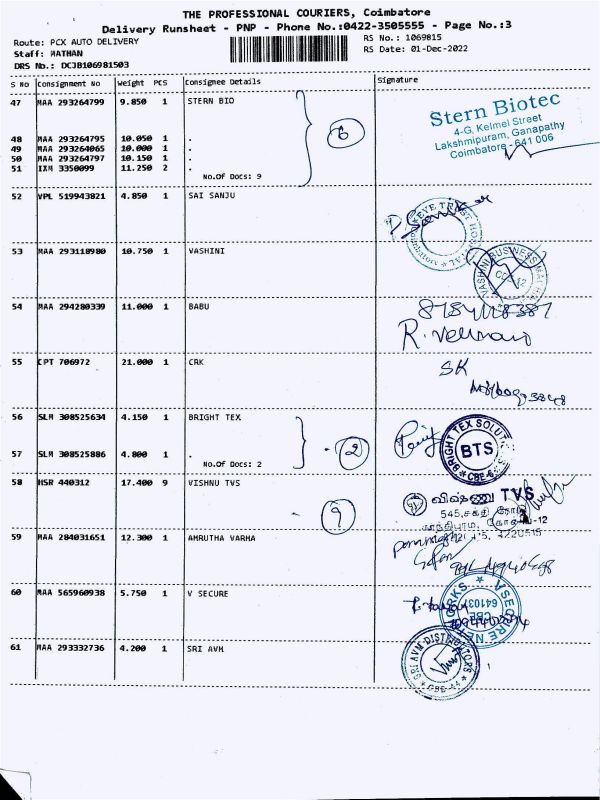 THE PROFESSIONAL COURIERS, Coimbatore
Delivery Runsheet - PNP - Phone No.:0422-3505555 - Page No.:3
Route: PCX AUTO DELIVERY
RS No.: 1069815
Staff: MATHAN
RS Date: 01-Dec-2022
DRS No.: DCJB106981503
S No Consignment No Weight PCS Consignee Details Signature
47 MAA 293264799 9.850 1 STERN BIO
48 MAA 293264795 10.050 1 .
49 MAA 293264065 10.000 1 .
50 MAA 293264797 10.150 1 .
51 IXM 3350099 11.250 2 .
No.Of Docs: 9
6
Stern Biotec
4-G, Kelmel Street
Lakshmipuram, Ganapathy
Coimbatore - 641 006
52 VPL 519943821 4.850 1 SAI SANJU
53 MAA 293118980 10.750 1 VASHINI
54 MAA 294280339 11.000 1 BABU
55 CPT 706972 21.000 1 CRK
SK
56 SLM 308525634 4.150 1 BRIGHT TEX
57 SLM 308525886 4.800 1 .
No.Of Docs: 2
2
BRIGHT TEX SOLUTI
BTS
58 HSR 440312 17.400 9 VISHNU TVS
9
விஷ்ணு TVS
59 MAA 284031651 12.300 1 AMRUTHA VARHA
60 MAA 565960938 5.750 1 V SECURE
61 MAA 293332736 4.200 1 SRI AVM
SRI AVM DISTRIBUTORS
CBE-44